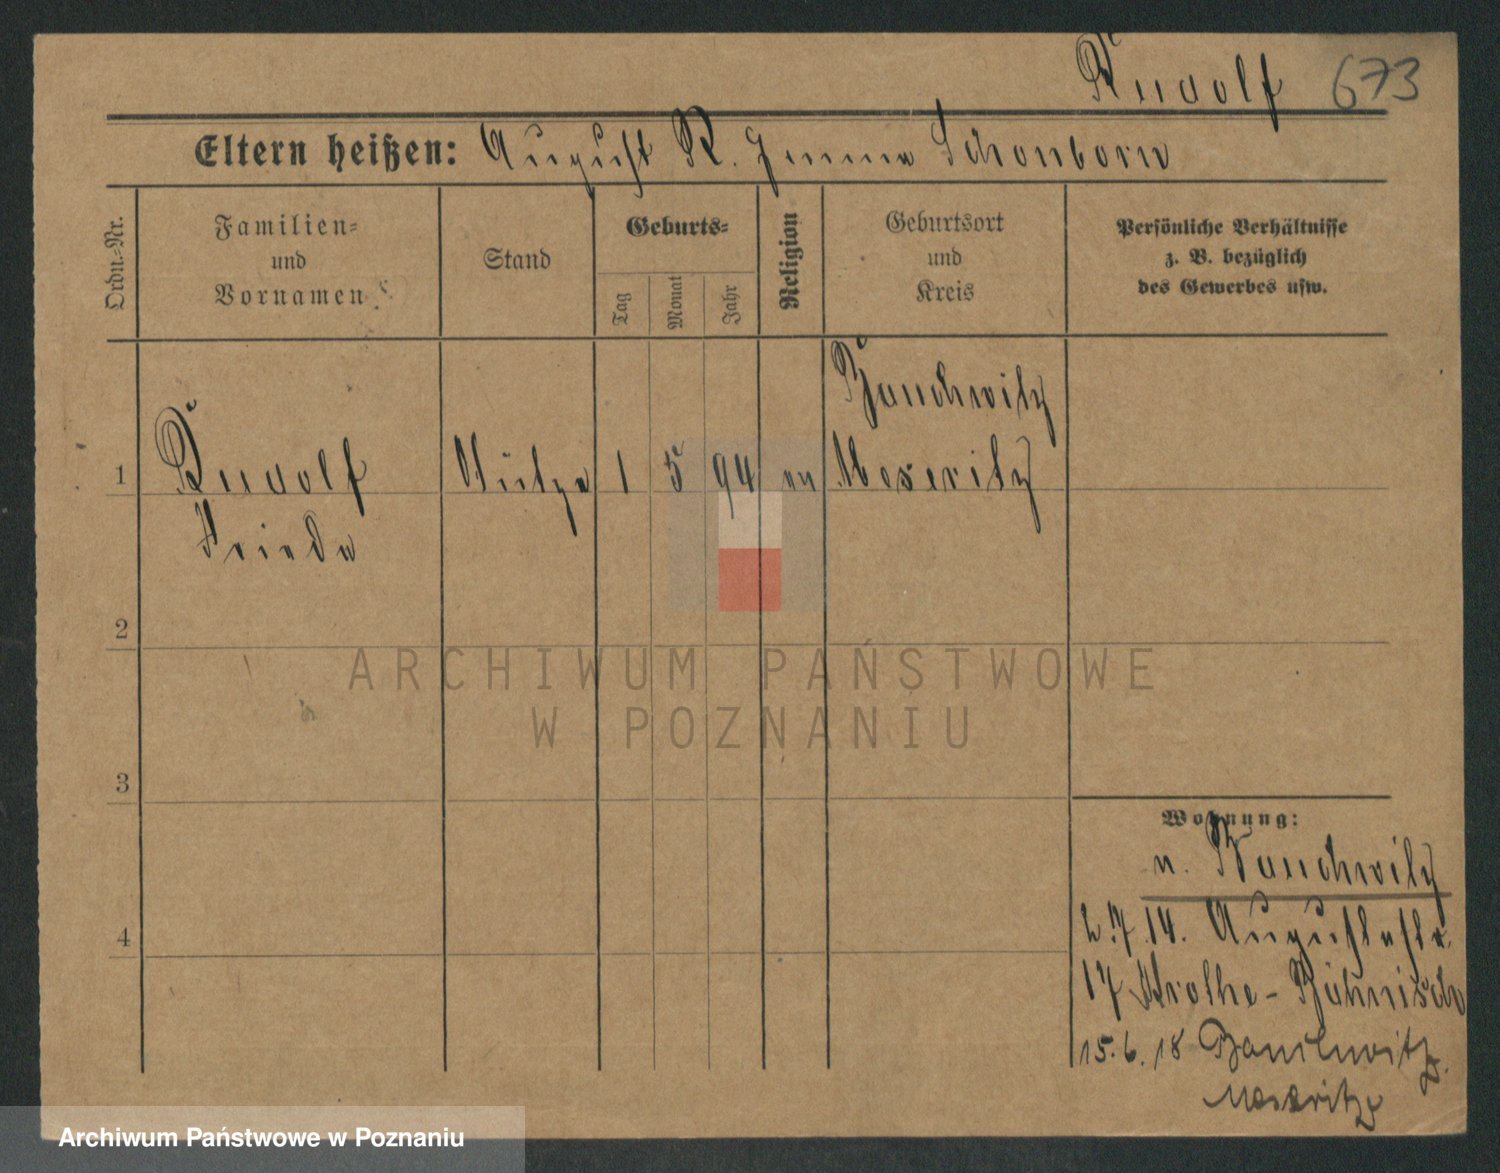 Rudolf 673
Eltern heißen: August R. Emma Schonborn
Ordn.-Nr.
Familien-
und
Vornamen
Stand
Geburts-
Tag
Monat
Jahr
Religion
Geburtsort
und
Kreis
Persönliche Verhältnisse
z. B. bezüglich
des Gewerbes usw.
Bauchwitz
1 Rudolf Stütze 1 5 94 ev Meseritz
Frieda
2
3
4
Wohnung:
n. Bauchwitz
2.7.14. Augustastr.
17
15.6.18 Bauchwitz
Meseritz
ARCHIWUM PAŃSTWOWE
W POZNANIU
Archiwum Państwowe w Poznaniu